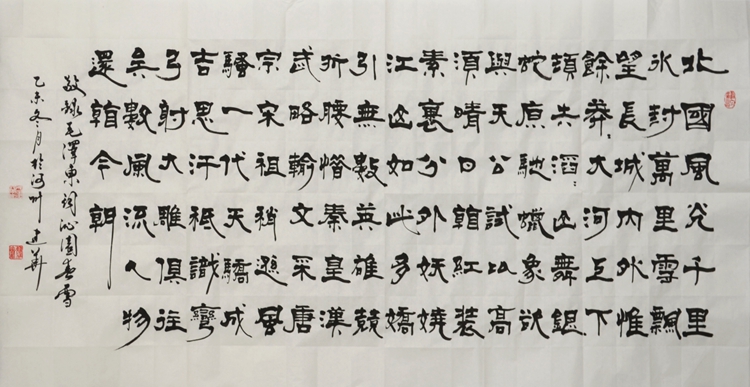 北國風光千里
冰封萬里雪飄
望長城内外惟
餘莽〻大河上下
頓失滔〻山舞銀
蛇原馳蠟象欲
與天公試比高
須晴日看紅裝
素裹分外妖嬈
江山如此多嬌
引無數英雄競
折腰惜秦皇漢
武略輸文采唐
宗宋祖稍遜風
騷一代天驕成
吉思汗祗識彎
弓射大雕俱往
矣數風流人物
還看今朝
敬録毛澤東詞沁園春雪
乙未冬月於河州建華